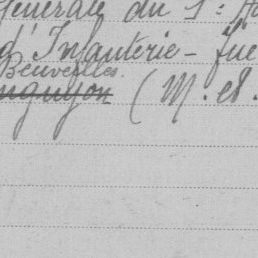 Générale du 1er
d'Infanterie - fue
Beuveilles.
nguyon (M. et.